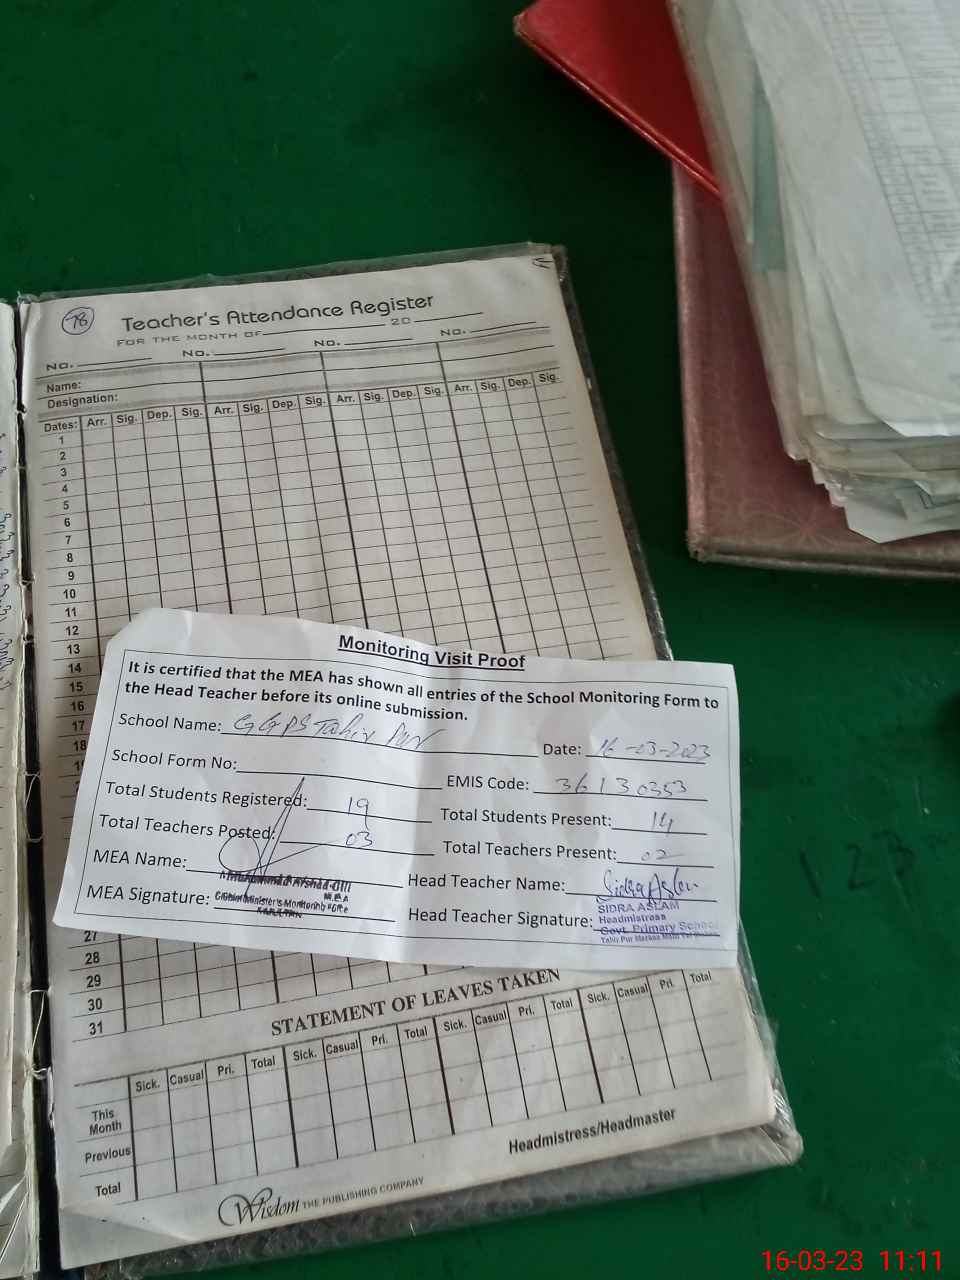 78
Teacher's Attendance Register
FOR THE MONTH OF 20
No. No. No. No.
Name:
Designation:
Dates: Arr. Sig. Dep. Sig. Arr. Sig. Dep. Sig. Arr. Sig. Dep. Sig. Arr. Sig. Dep. Sig.
1
2
3
4
5
6
7
8
9
10
11
12
13
14
15
16
17
18
Monitoring Visit Proof
It is certified that the MEA has shown all entries of the School Monitoring Form to
the Head Teacher before its online submission.
School Name: GGPS Tahir Pur Date: 16-03-2023
School Form No: EMIS Code: 36130353
Total Students Registered: 19 Total Students Present: 14
Total Teachers Posted: 03 Total Teachers Present: 02
MEA Name: Head Teacher Name: Sidra Aslam
Muhammad Arshad
M.E.A
MEA Signature: Chief Minister's Monitoring Force Head Teacher Signature: SIDRA ASLAM
MULTAN
Headmistress
Govt. Primary School
27
28
29
30
31
STATEMENT OF LEAVES TAKEN
Sick. Casual Pri. Total Sick. Casual Pri. Total Sick. Casual Pri. Total Sick. Casual Pri. Total
This
Month
Previous
Total
Headmistress/Headmaster
Wisdom THE PUBLISHING COMPANY
123
16-03-23 11:11